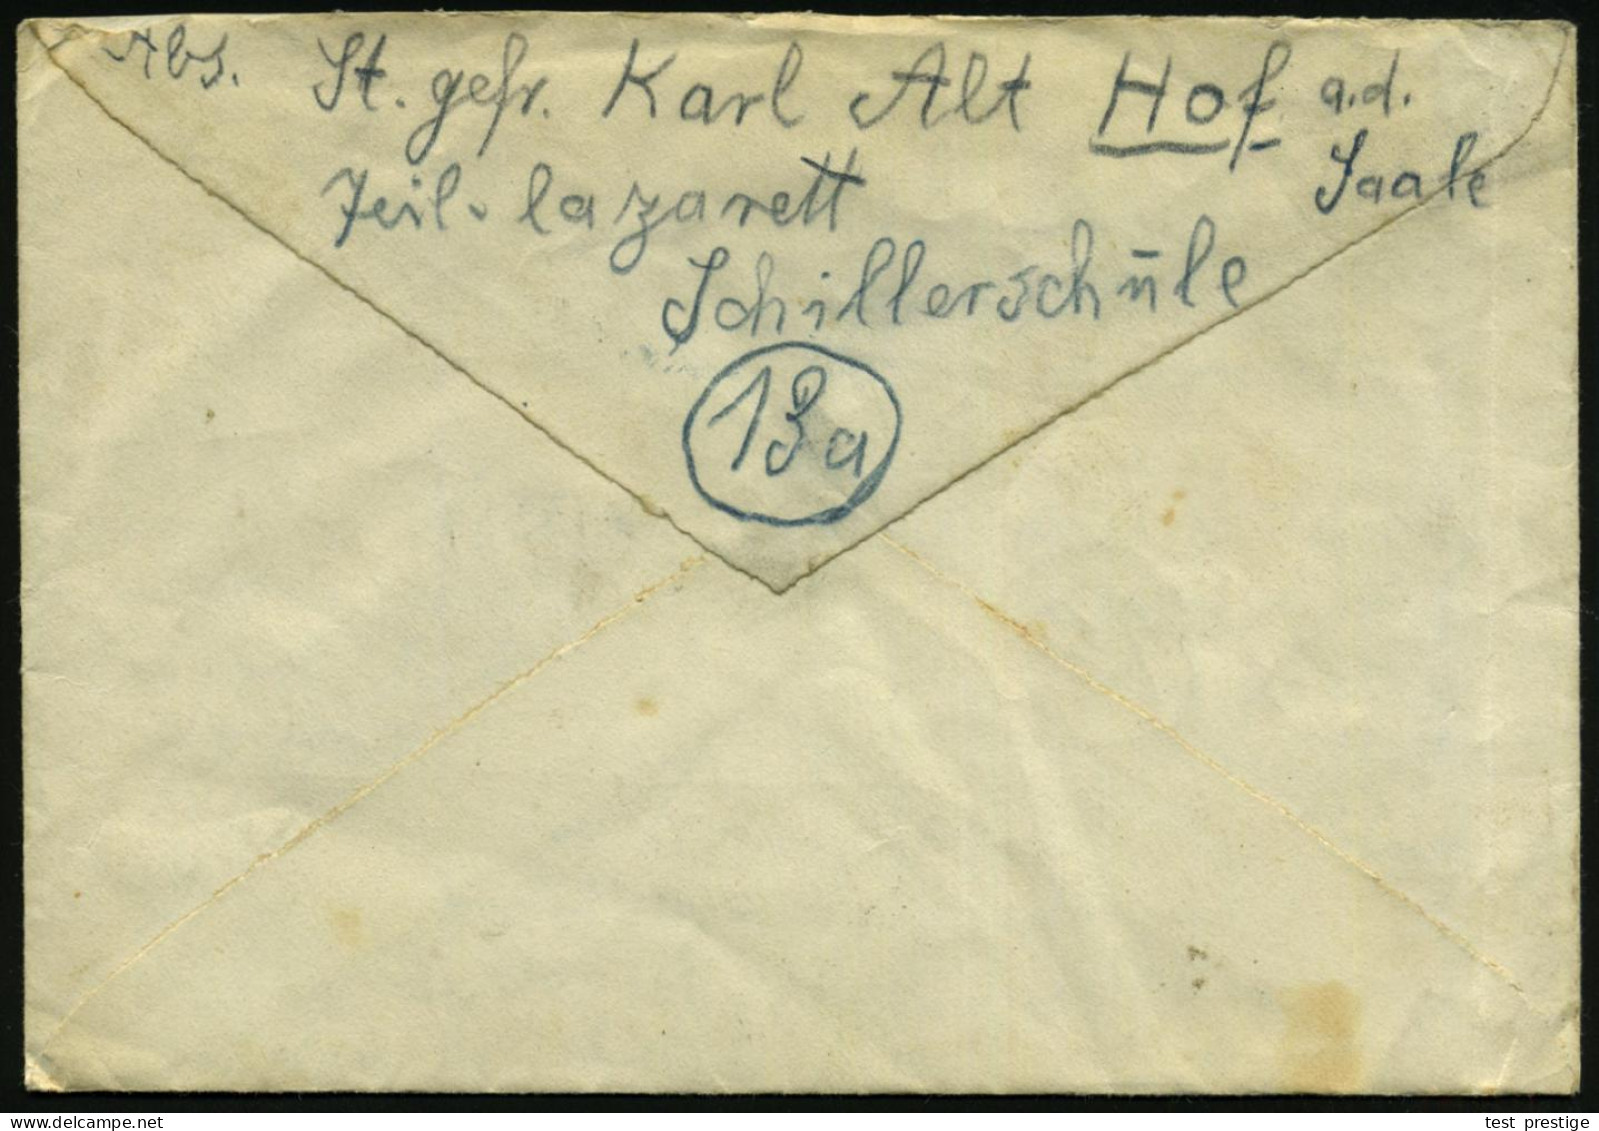 Abs. St. gefr. Karl Alt Hof a.d.
Saale
Teil-lazarett
Schillerschūle
13a
test prestige